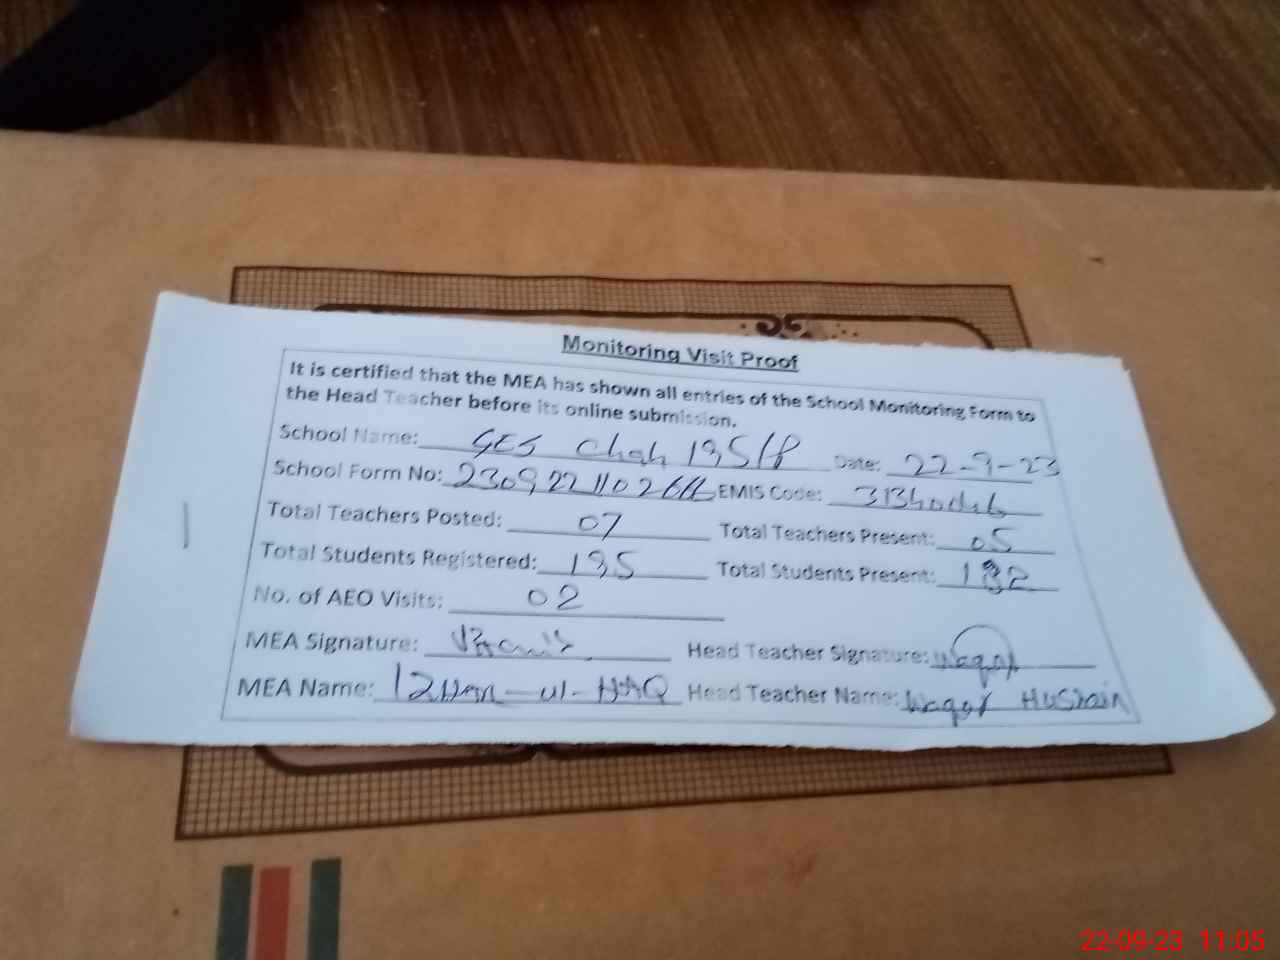 Monitoring Visit Proof
It is certified that the MEA has shown all entries of the School Monitoring Form to
the Head Teacher before its online submission.
School Name: GES Chah 195/P Date: 22-9-23
School Form No: EMIS Code:
Total Teachers Posted: 07 Total Teachers Present: 05
Total Students Registered: 195 Total Students Present:
No. of AEO Visits: 02
MEA Signature: Head Teacher Signature: Waqar
MEA Name: -ul-HAQ Head Teacher Name: Waqar HUSSain
22-09-23 11:05